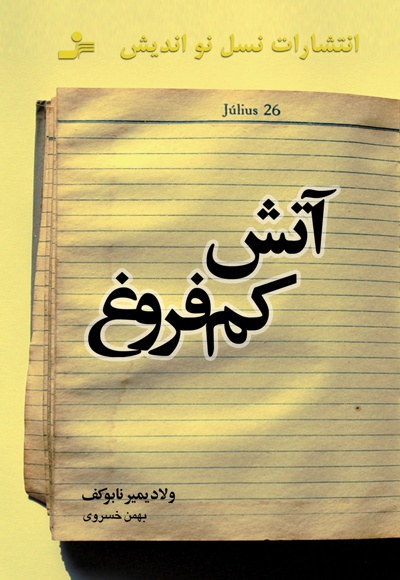 انتشارات نسل نو اندیش
Július 26
آتش
کم‌فروغ
ولادیمیر نابوکف
بهمن خسروی